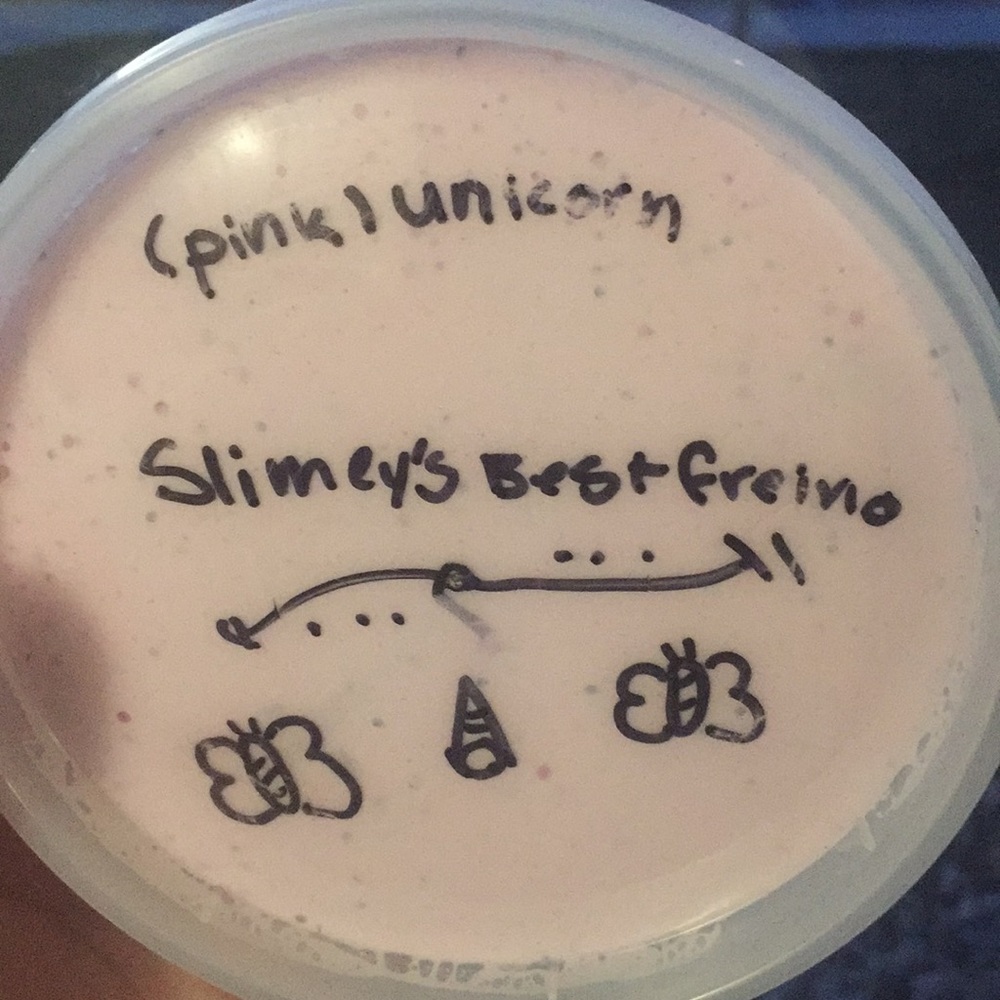 (pink) unicorn
Slimey's Best freind